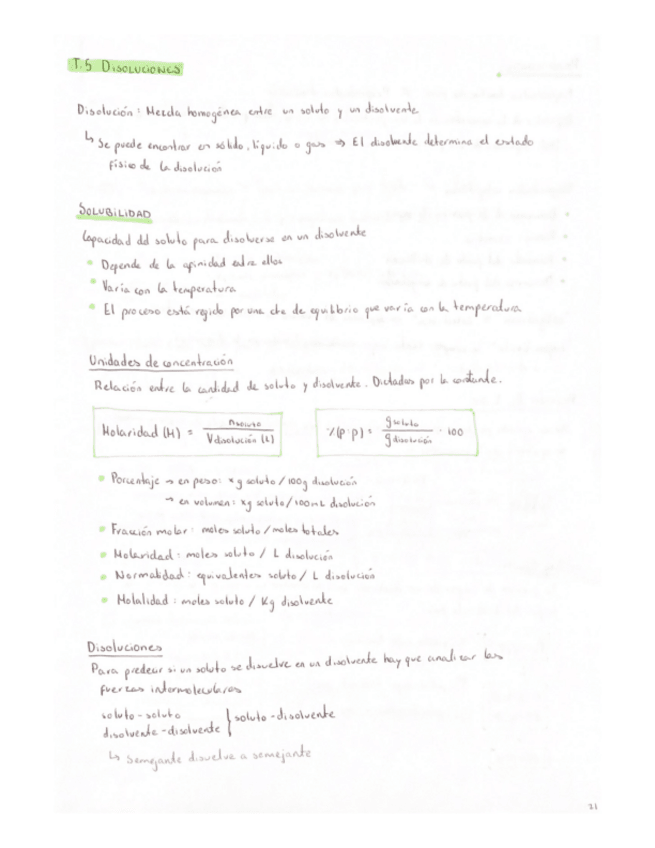 T.5 DISOLUCIONES
Disolución: Mezcla homogénea entre un soluto y un disolvente
↳ Se puede encontrar en sólido, líquido o gas ⇒ El disolvente determina el estado
físico de la disolución
SOLUBILIDAD
Capacidad del soluto para disolverse en un disolvente
• Depende de la afinidad entre ellos
• Varía con la temperatura
• El proceso está regido por una cte de equilibrio que varía con la temperatura
Unidades de concentración
Relación entre la cantidad de soluto y disolvente. Dictadas por la constante.
Molaridad (M) = n soluto / V disolución (L)
%(p·p) = g soluto / g disolución · 100
• Porcentaje → en peso: x g soluto / 100 g disolución
→ en volumen: x g soluto / 100 mL disolución
• Fracción molar: moles soluto / moles totales
• Molaridad: moles soluto / L disolución
• Normalidad: equivalentes soluto / L disolución
• Molalidad: moles soluto / Kg disolvente
Disoluciones
Para predecir si un soluto se disuelve en un disolvente hay que analizar las
fuerzas intermoleculares
soluto-soluto
disolvente-disolvente } soluto-disolvente
↳ Semejante disuelve a semejante
21